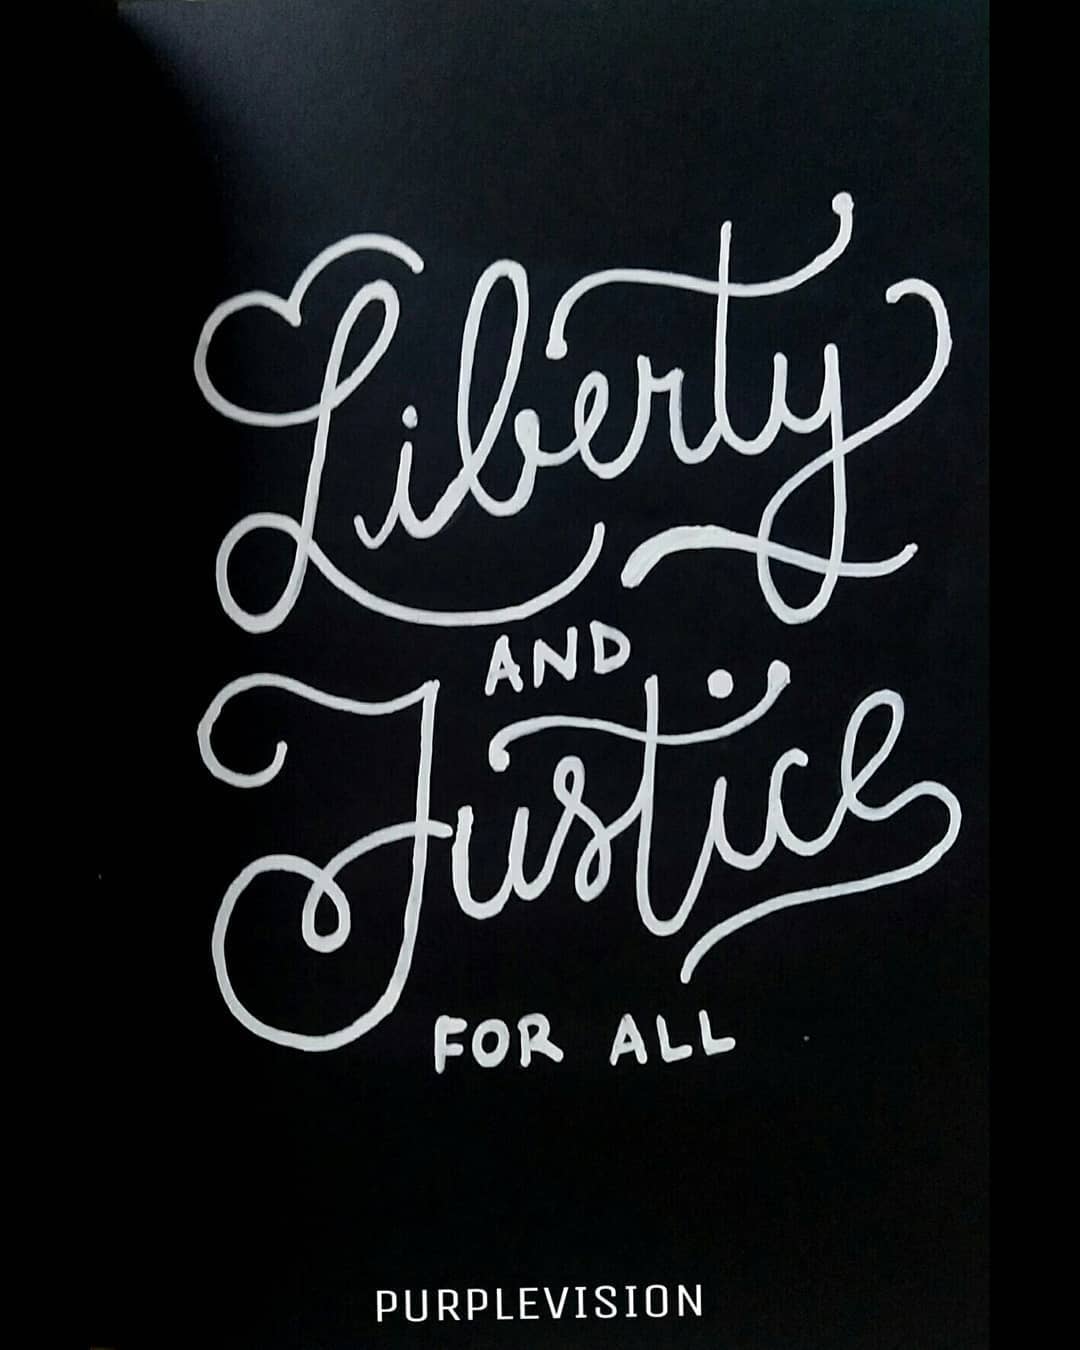 Liberty
AND
Justice
FOR ALL
PURPLEVISION